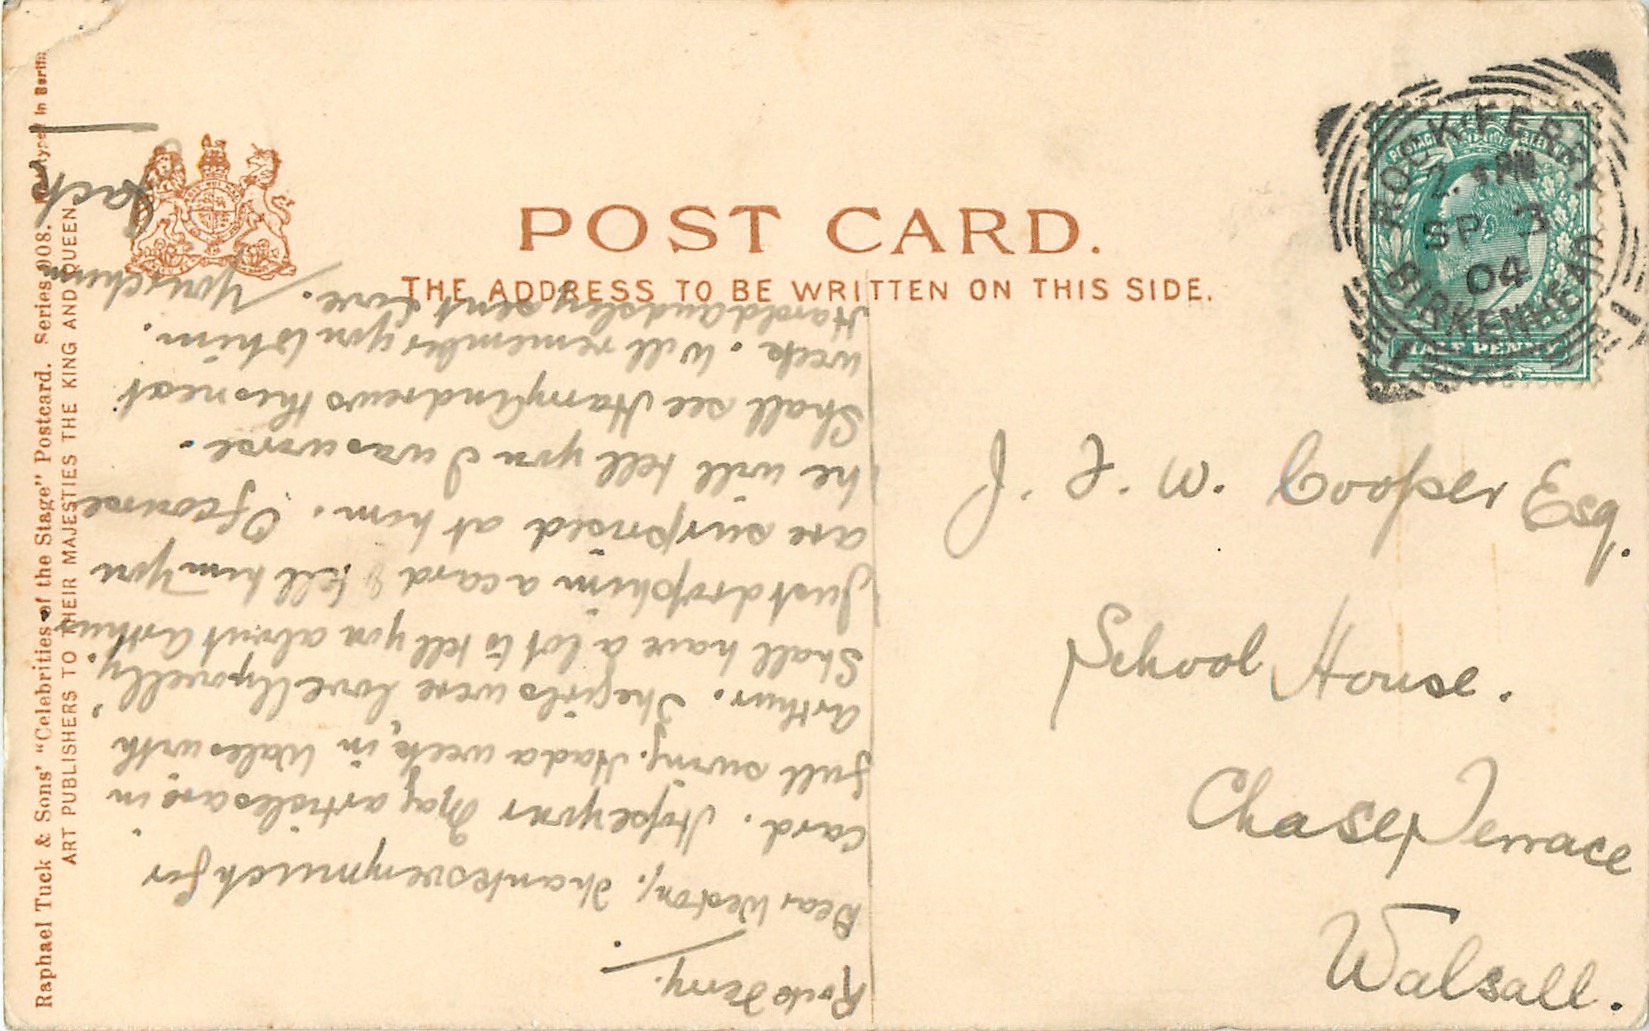 POST CARD.
THE ADDRESS TO BE WRITTEN ON THIS SIDE.
Raphael Tuck & Sons' "Celebrities of the Stage" Postcard. Series 908. in Berlin
ART PUBLISHERS TO THEIR MAJESTIES THE KING AND QUEEN
ROCK FERRY
PM
SP 3
04
BIRKENHEAD
HALF PENNY
J. F. W. Cooper Esq.
School House.
Chase Terrace
Walsall.
Rock Ferry.
Dear Weston, Thanks very much for
card. Hope your Mag articles are in
full swing. Had a week, in Wales with
Arthur. The girls were lovelly, novelly.
Shall have a lot to tell you about Arthur
Just drop him a card & tell him you
are surprised at him. Of course
he will tell you I was worse.
Shall see Harry Andrews this next
week. Will remember you to him.
Harold and sent love. Your chum
Jack